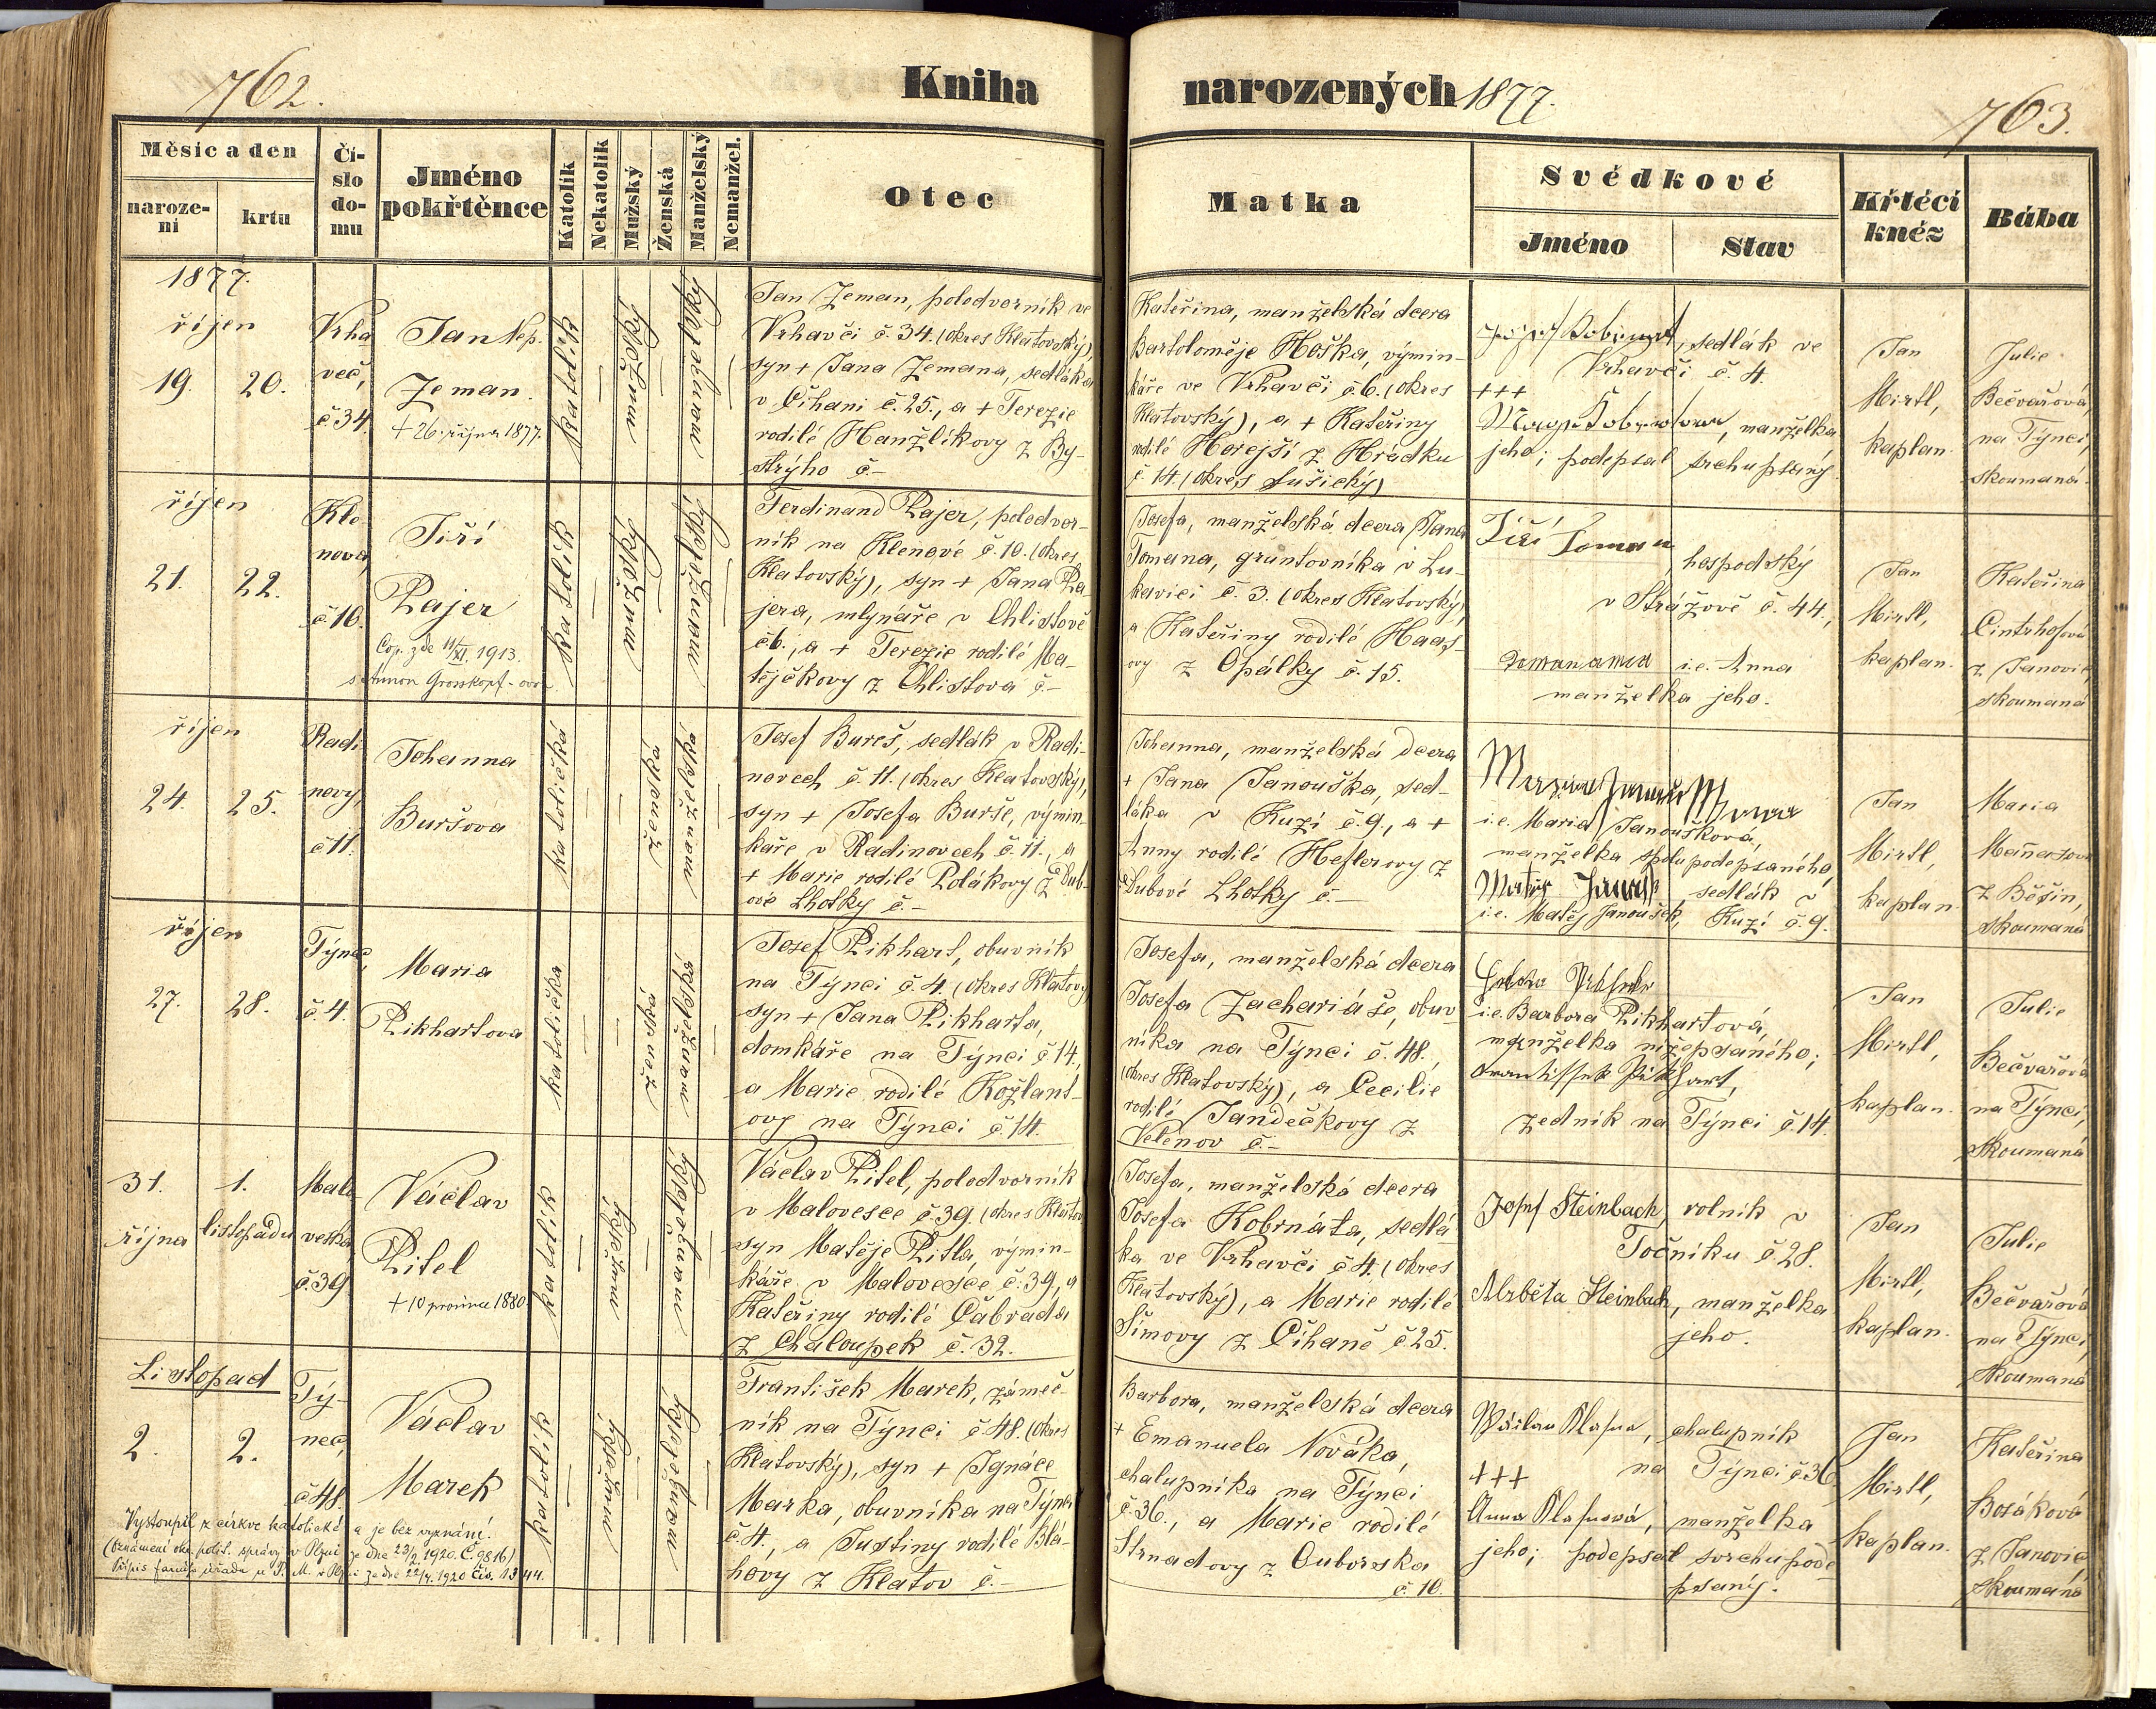 762.
Kniha
narozených 1877.
763.
Měsíc a den
naroze-
ní
krtu
Čí-
slo
do-
mu
Jméno
pokřtěnce
Katolík
Nekatolík
Mužský
Ženská
Manželský
Nemanžel.
Otec
Matka
Svědkové
Jméno
Stav
Křtěcí
kněz
Bába
1877.
říjen
19.
20.
Vrha
več,
č 34.
Jan Nep.
Zeman.
+ 26. října 1877.
katolík
mužský
manželský
Jan Zeman, polodvorník ve
Vrhavči č. 34. (okres Klatovský),
syn + Jana Zemana, sedláka
v Číhani č. 25., a + Terezie
rodilé Hanžlíkovy z By-
strýho č –
Kateřina, manželská dcera
Bartoloměje Hoška, výmin-
káře ve Vrhavči č. 6. (okres
Klatovský), a + Kateřiny
rodilé Horejší z Hrádku
č 14. (okres Sušický)
sedlák ve
Vrhavči č. 4.
+++
manželka
jeho; podepsal svrchupsaný
Jan
Mirtl,
kaplan.
Julie
Bečvařová
na Týnci,
skoumaná.
říjen
21.
22.
Kle-
nová,
č 10.
Jiří
Rajer
Cop. zde 11/XI. 1913.
s Annou Grosskopf-ovou
katolík
mužský
manželský
Ferdinand Rajer, polodvor-
ník na Klenové č. 10. (okres
Klatovský), syn + Jana Ra-
jera, mlynáře v Chlistově
č 6., a + Terezie rodilé Ma-
tějčkovy z Chlistova č –
Josefa, manželská dcera Jana
Tomana, gruntovníka v Lu-
kavici č. 3. (okres Klatovský),
a Kateřiny rodilé Haas-
ovy z Opálky č. 15.
Jiří Toman
hospodský
v Strážově č. 44.,
i.e. Anna
manželka jeho.
Jan
Mirtl,
kaplan.
Kateřina
Cintrhofová
z Janovic,
skoumaná
říjen
24.
25.
Radi
novy,
č 11.
Johanna
Buršova
katolička
ženská
manželská
Josef Bureš, sedlák v Radi-
novech č 11. (okres Klatovský),
syn + Josefa Burše, výmin-
káře v Radinovech č. 11., a
+ Marie rodilé Polákovy z Dub-
ové Lhotky č. –
Johanna, manželská dcera
+ Jana Janouška, sed-
láka v Kuzí č. 9., a +
Anny rodilé Heflerovy z
Dubové Lhotky č. –
i.e. Maria Janoušková,
manželka spolupodepsaného,
sedlák v
i.e. Matěj Janoušek, Kuzí č. 9.
Jan
Mirtl,
kaplan
Maria
z Běšin,
skoumaná
říjen
27.
28.
Týnec,
č. 4.
Maria
Pikhartova
katolička
ženská
manželská
Josef Pikhart, obuvník
na Týnci č. 4. (okres Klatovy)
syn + Jana Pikharta,
domkáře na Týnci č 14.,
a Marie rodilé Kožlant-
ovy na Týnci č. 14.
Josefa, manželská dcera
Josefa Zachariáše, obuv-
níka na Týnci č. 48.,
(okres Klatovský), a Cecilie
rodilé Jandečkovy z
Velenov č. –
i.e. Barbora Pikhartová,
manželka nížepsaného;
zedník na Týnci č 14.
Jan
Mirtl,
kaplan.
Julie
Bečvařová
na Týnci,
skoumaná
31.
října
1.
listopadu
Malo
veska
č. 39
Václav
Pitel
+ 10 prosince 1880.
katolík
mužský
manželský
Václav Pitel, polodvorník
v Malovesce č. 39. (okres Klatov
syn Matěje Pitla, výmin-
káře v Malovesce č. 39, a
Kateřiny rodilé Čabrada
z Chaloupek č. 32.
Josefa, manželská dcera
Josefa Kobrnáta, sedlá
ka ve Vrhavči č 4. (okres
Klatovský), a Marie rodilé
Šímovy z Číhaně č. 25.
Josef Steinbach, rolník v
Točníku č. 28.
Alžběta Steinbach, manželka
jeho.
Jan
Mirtl,
kaplan.
Julie
Bečvařová
na Týnci,
skoumaná
Listopad
2.
2.
Tý-
nec,
č 48.
Václav
Marek
katolík
mužský
manželský
František Marek, zámeč-
ník na Týnci č. 48. (okres
Klatovský), syn + Ignáce
Marka, obuvníka na Týnci
č. 4., a Justiny rodilé Blá-
hovy z Klatov č. –
Barbora, manželská dcera
+ Emanuela Nováka,
chalupníka na Týnci
č. 36., a Marie rodilé
Strnadovy z Ouborska
č. 10.
Václav Klasna, chalupník
+++ na Týnci č 36.
Anna Klasnová, manželka
jeho; podepsal svrchupode
psaný.
Jan
Mirtl,
kaplan.
Kateřina
Bosáková
z Janovic
skoumaná
Vystoupil z církve katolické a je bez vyznání.
(Oznámení okr. polit. správy v Plzni ze dne 23/2 1920. Č. 9816)
Přípis farního úřadu u P. M. v Plzni ze dne 22/4. 1920 čís. 1344.